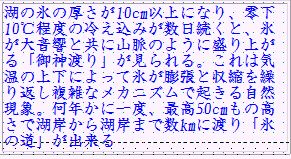 湖の氷の厚さが10cm以上になり、零下
10℃程度の冷え込みが数日続くと、氷
が大音響と共に山脈のように盛り上が
る「御神渡り」が見られる。これは気
温の上下によって氷が膨張と収縮を繰
り返し複雑なメカニズムで起きる自然
現象。何年かに一度、最高50cmもの高
さで湖岸から湖岸まで数kmに渡り「氷
の道」が出来る